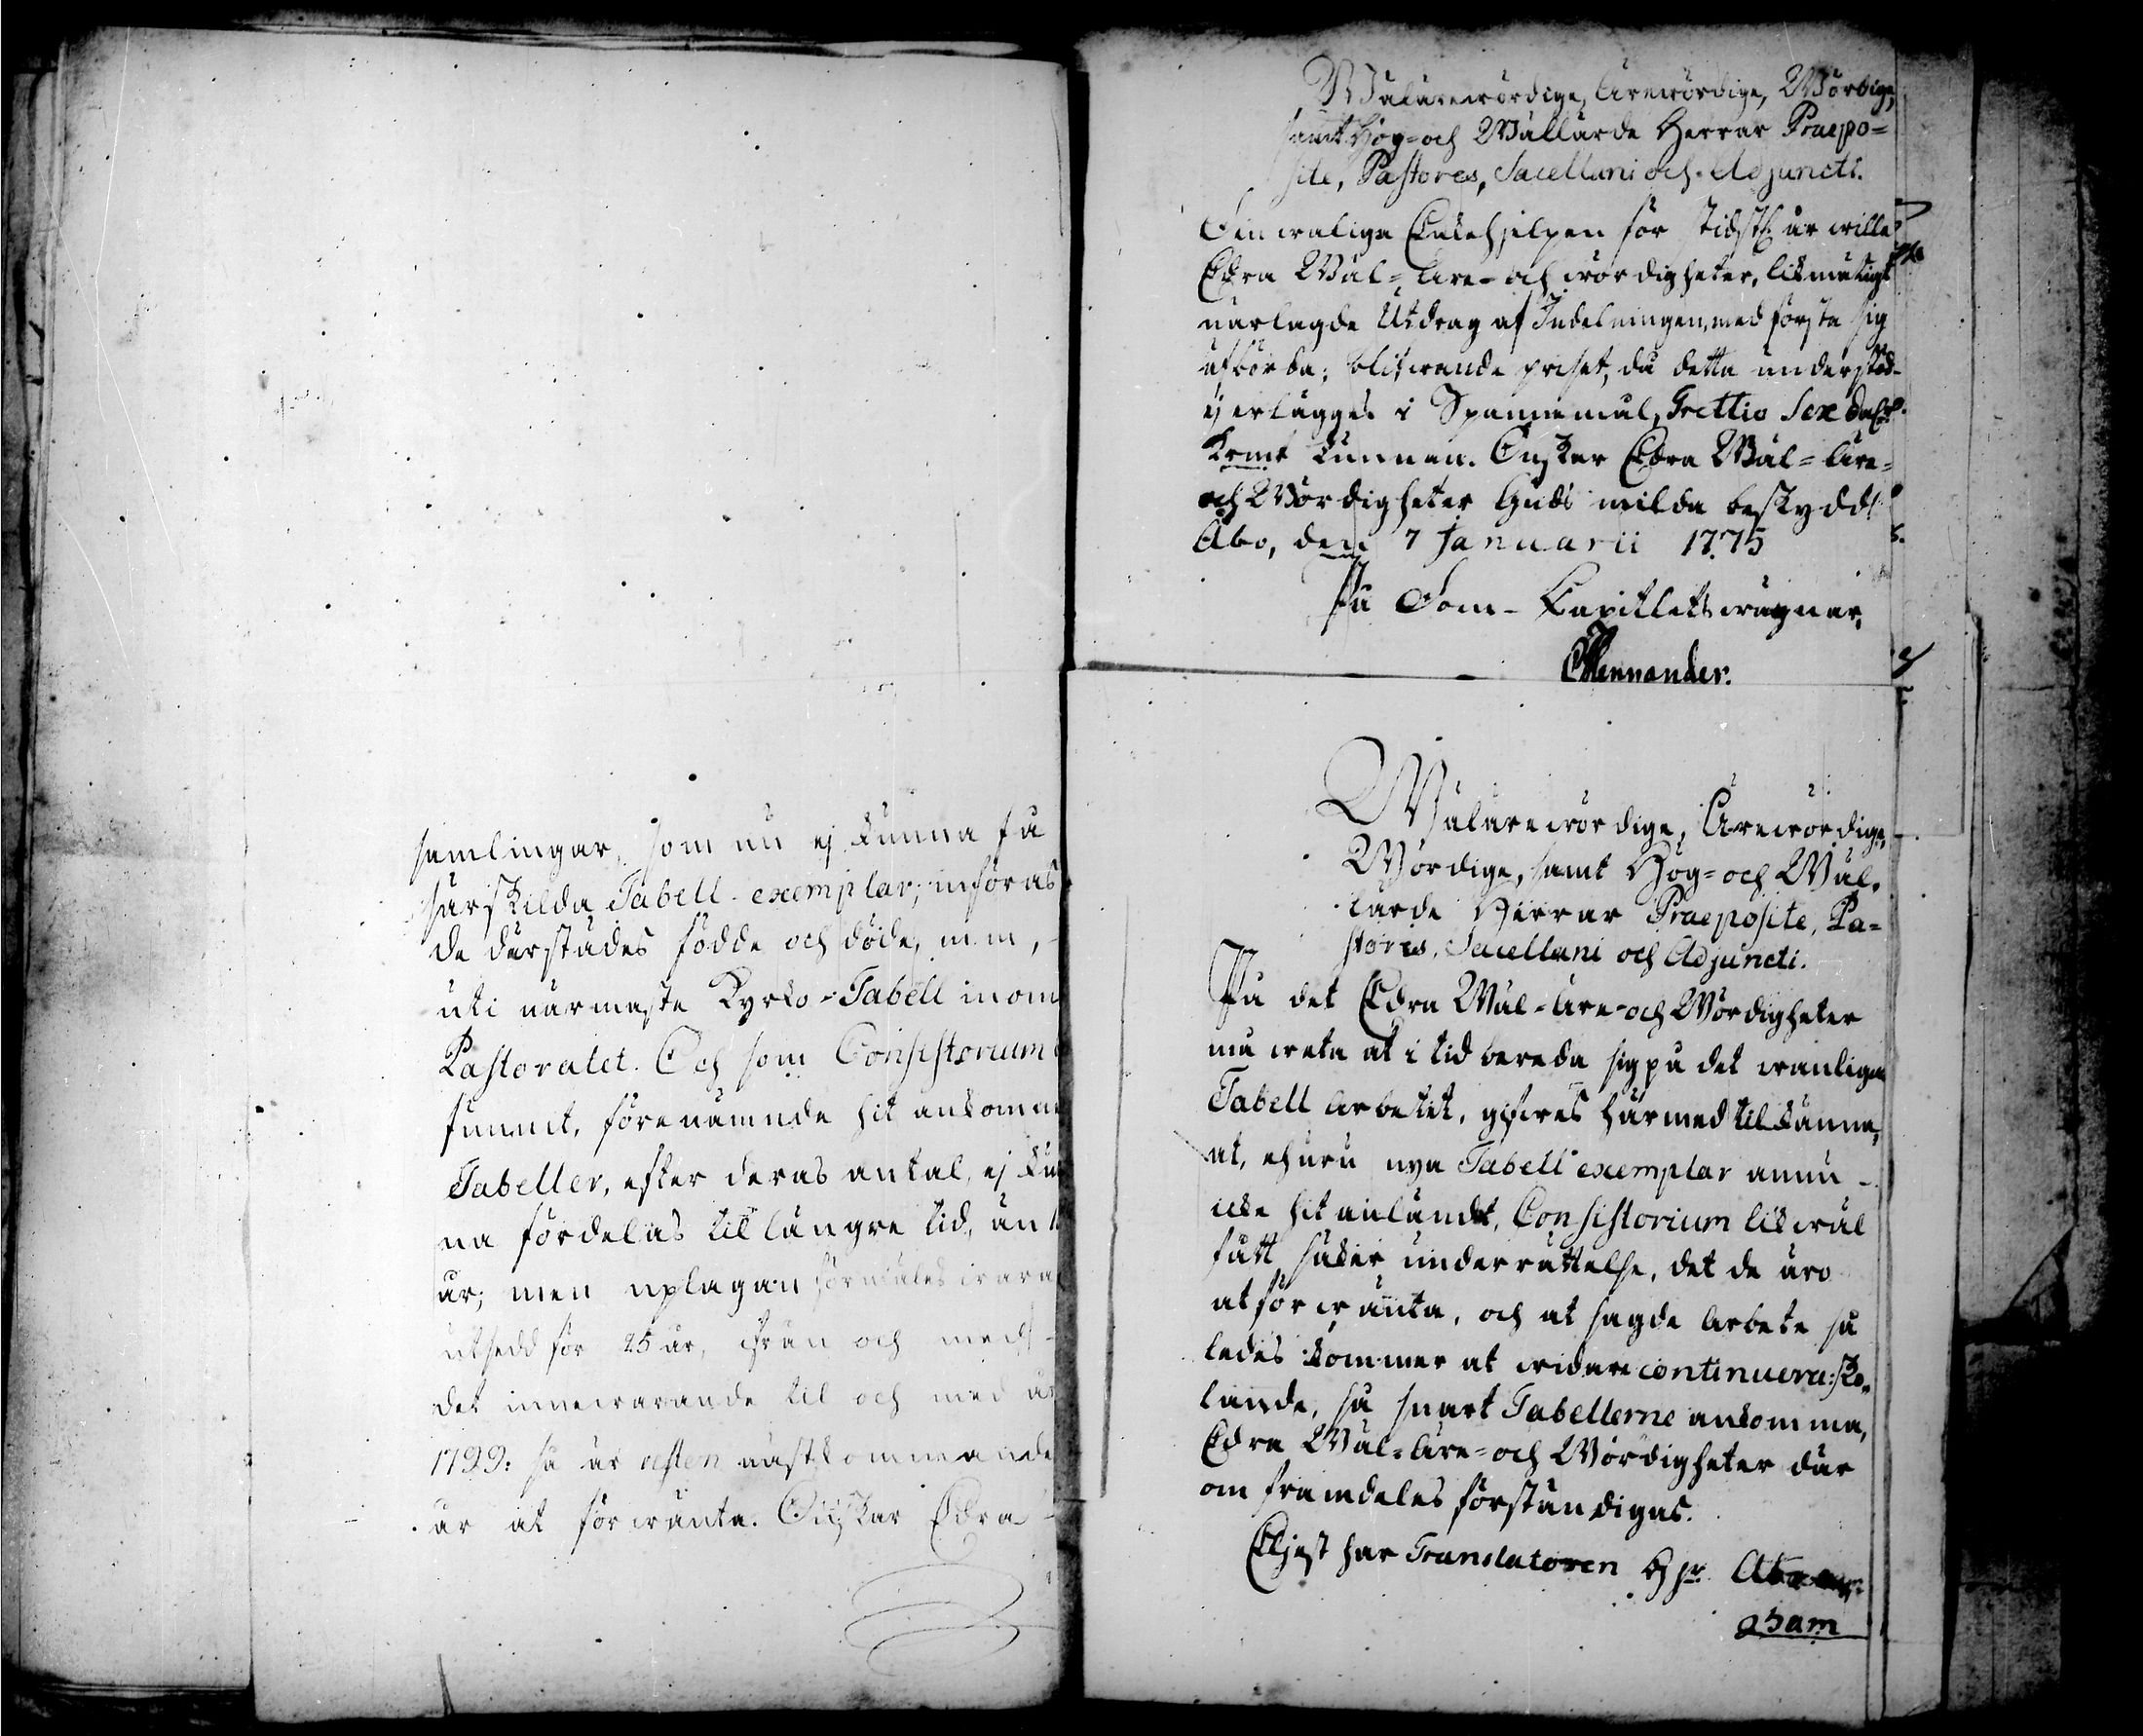 samlingar, som nu ej kunna få
särskilda Tabell-exemplar; införas
de därstädes födde och döde, m.m,
uti närmaste Kyrko-Tabell inom
Pastoratet. Och som Consistorium
funnit, förenämnde hit ankomne
Tabeller, efter deras antal, ej kun
na fördelas til längre tid, än
år; men uplagan förmäles wara
utsedd för 25 år, ifrån och med
det innewarande til och med år
1799: så är resten nästkommande
år at förwänta. Önskar Edra
Wälärewördige, Ärewördige, Wördige,
samt Hög- och Wällärde Herrar Praepo=
site, Pastores, Sacellani och Adjuncti.
Den wanliga Enkehjelpen för tidstf. år wille
Edra Wäl-, Äre- och wördigheter, likmätigt
närlagde Utdrag af Indelningen, med första sig
afbörda; blifwande priset, då detta understöd
ej erlägges i Spannemål, Trettio Sex Dal.
Kpmt tunnan. Önskar Edra Wäl- Äre-
och Wördigheter Guds milda beskydd!
Åbo, den 7 Januarii 1775
På Dom-Capitlets wägnar,
CFMennander.
Wälärewördige, Ärewördige,
Wördige, samt Hög- och Wäl-
lärde Herrar Praeposite, Pa=
stores, Sacellani och Adjuncti.
På det Edra Wäl- Äre- och Wördigheter
må weta at i tid bereda sig på det wanliga
Tabell Arbetet, gifwes härmed tilkänna,
at, ehuru nya Tabell exemplar ännu
icke hit anländt, Consistorium likwäl
fått säker underrättelse, det de äro
at förwänta, och at sagde Arbete så
ledes kommer at widare continuera: Sko„
lande, så snart Tabellerne ankomma,
Edra Wäl- Äre- och Wördigheter där
om framdeles förständigas.
Eljest har Translatoren Hr Abra
ham